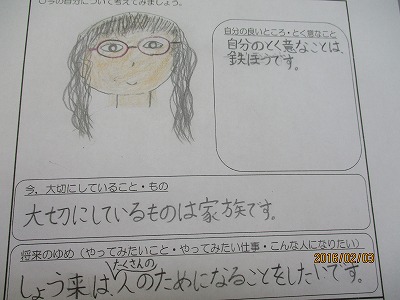 今の自分について考えてみましょう。
自分の良いところ・とく意なこと
自分のとく意なことは、
鉄ぼうです。
今、大切にしていること・もの
大切にしているものは家族です。
将来のゆめ（やってみたいこと・やってみたい仕事・こんな人になりたい）
たくさんの
しょう来は、人のためになることをしたいです。
2016/02/03